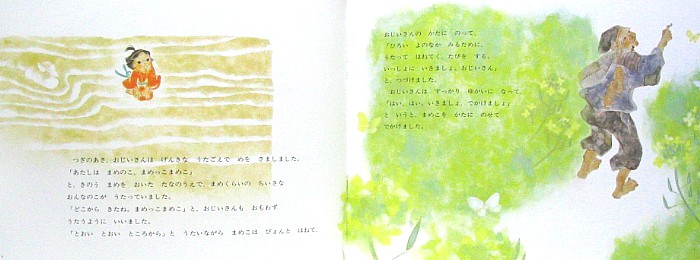 つぎのあさ、おじいさんは げんきな うたごえで めを さましました。
「あたしは まめのこ、まめっこまめこ」
と、きのう まめを おいた たなのうえで、まめくらいの ちいさな
おんなのこが うたっていました。
「どこから きたね、まめっこまめこ」と、おじいさんも おもわず
うたうように いいました。
「とおい とおい ところから」と うたいながら まめこは ぴょんと はねて、
おじいさんの かたに のって、
「ひろい よのなか みるために、
うたって はねてく、たびを する。
いっしょに いきましょ、おじいさん」
と、つづけました。
おじいさんは すっかり ゆかいに なって、
「はい、はい、いきましょ、でかけましょ」
と いうと、まめこを かたに のせて
でかけました。